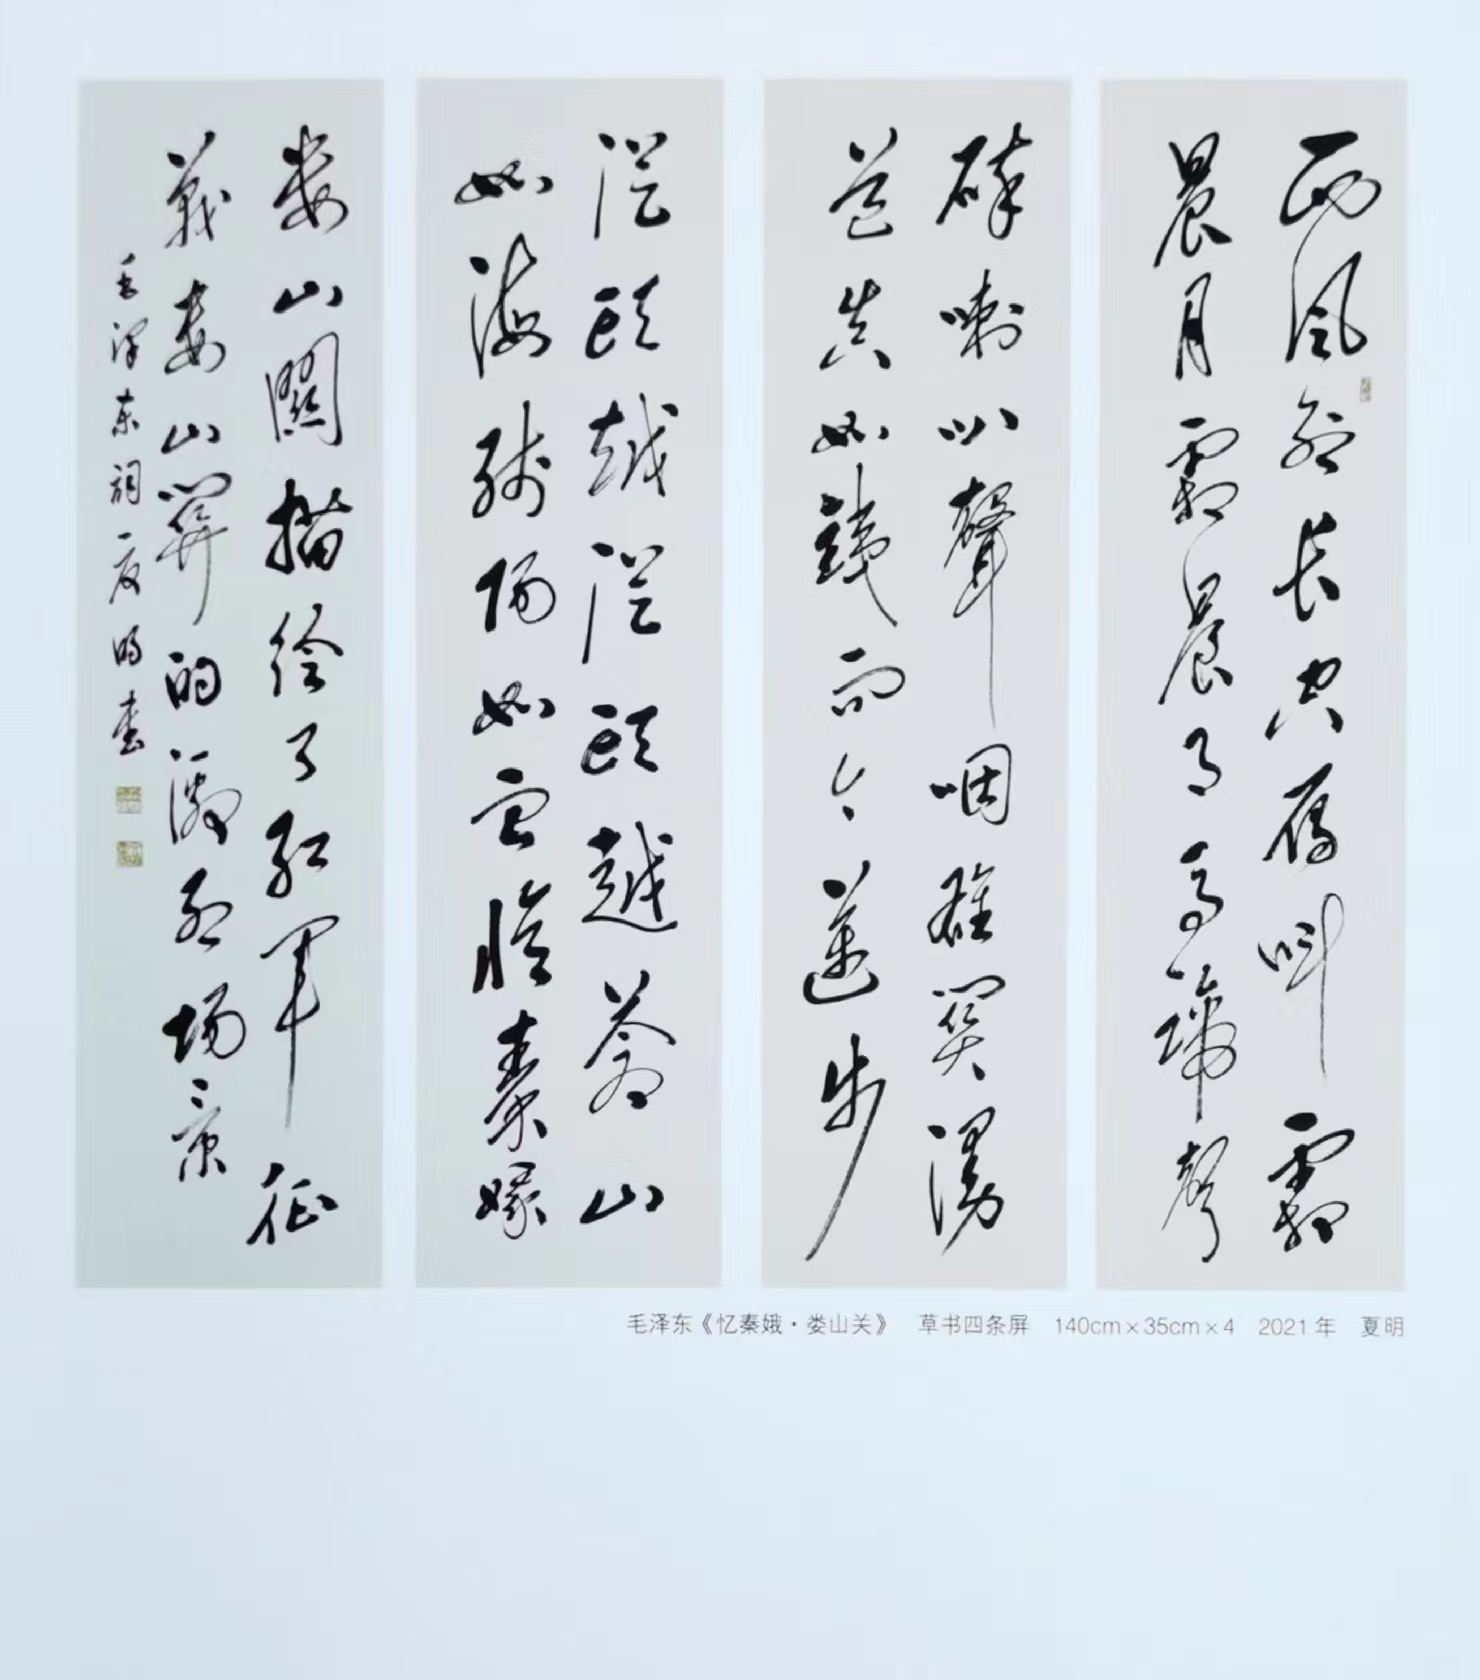 西风烈长空雁叫霜
晨月霜晨月马蹄声
碎喇叭聲咽雄关漫
道真如鐵而今迈步
從头越從头越苍山
如海残阳如血忆秦娥
娄山關描绘了红军征
战娄山关的激烈场景
毛泽东词夏明书
毛泽东《忆秦娥·娄山关》 草书四条屏 140cm×35cm×4 2021年 夏明